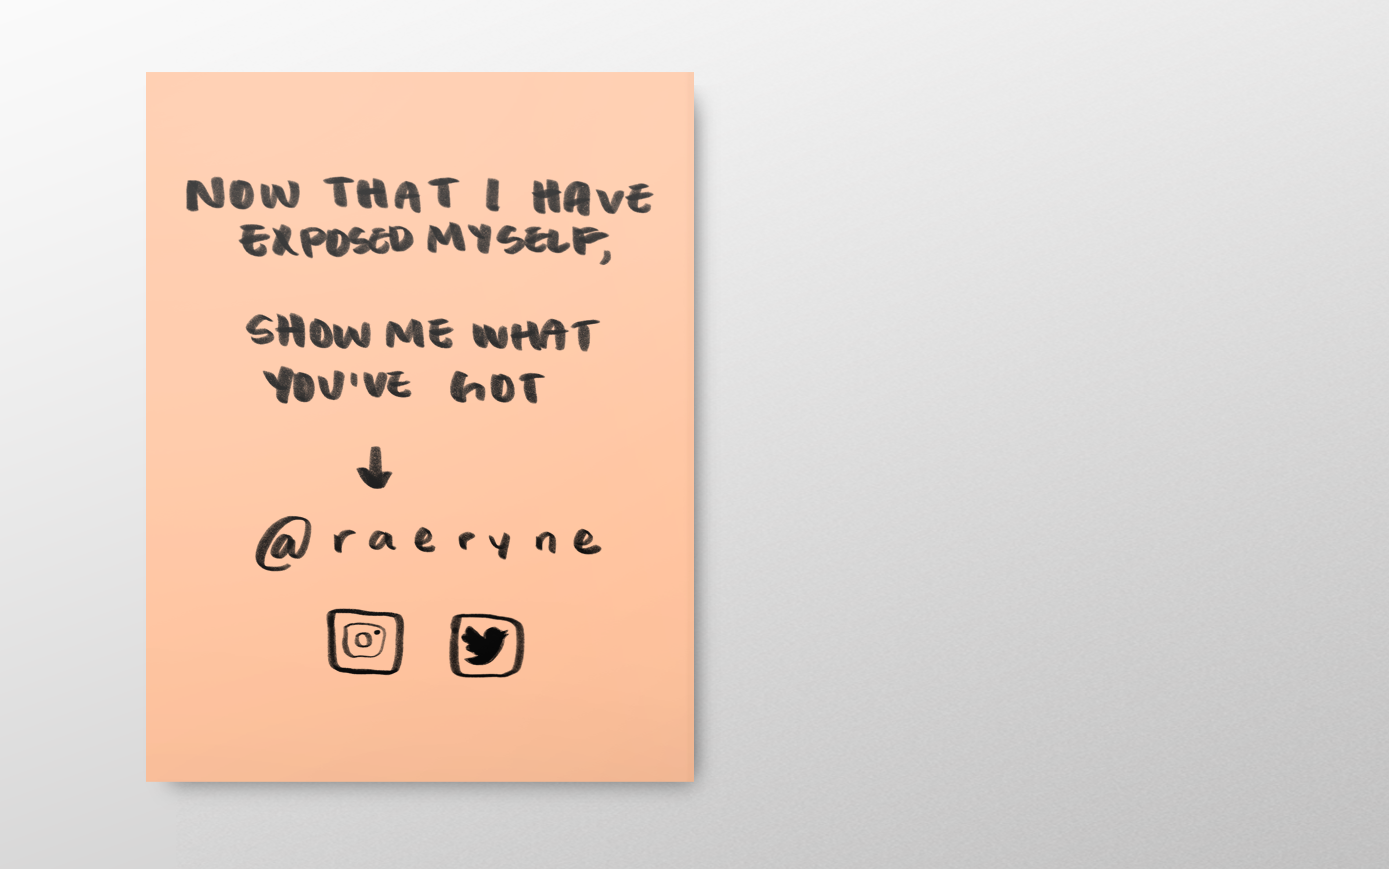 NOW THAT I HAVE
EXPOSED MYSELF,
SHOW ME WHAT
YOU'VE GOT
@raeryne